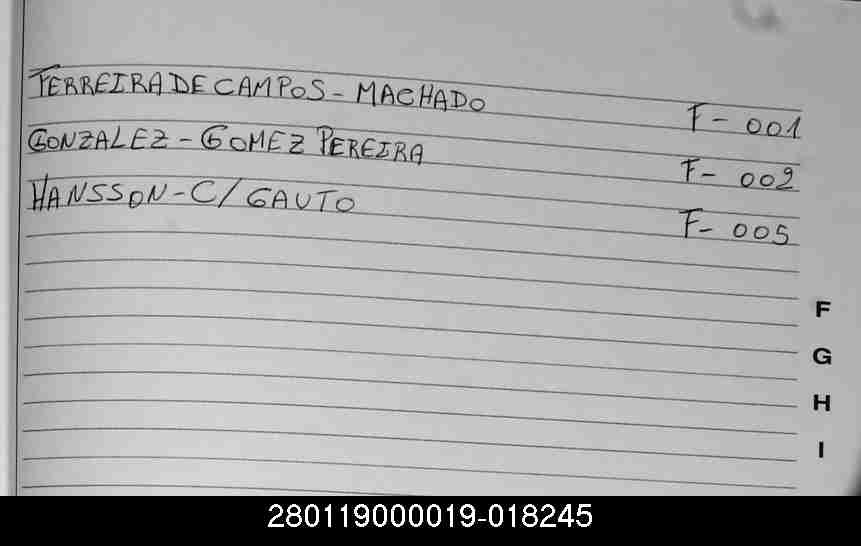 FERREIRA DE CAMPOS - MACHADO F- 001
GONZALEZ - GOMEZ PEREIRA F- 002
HANSSON - C/ GAUTO F- 005
F
G
H
I
280119000019-018245